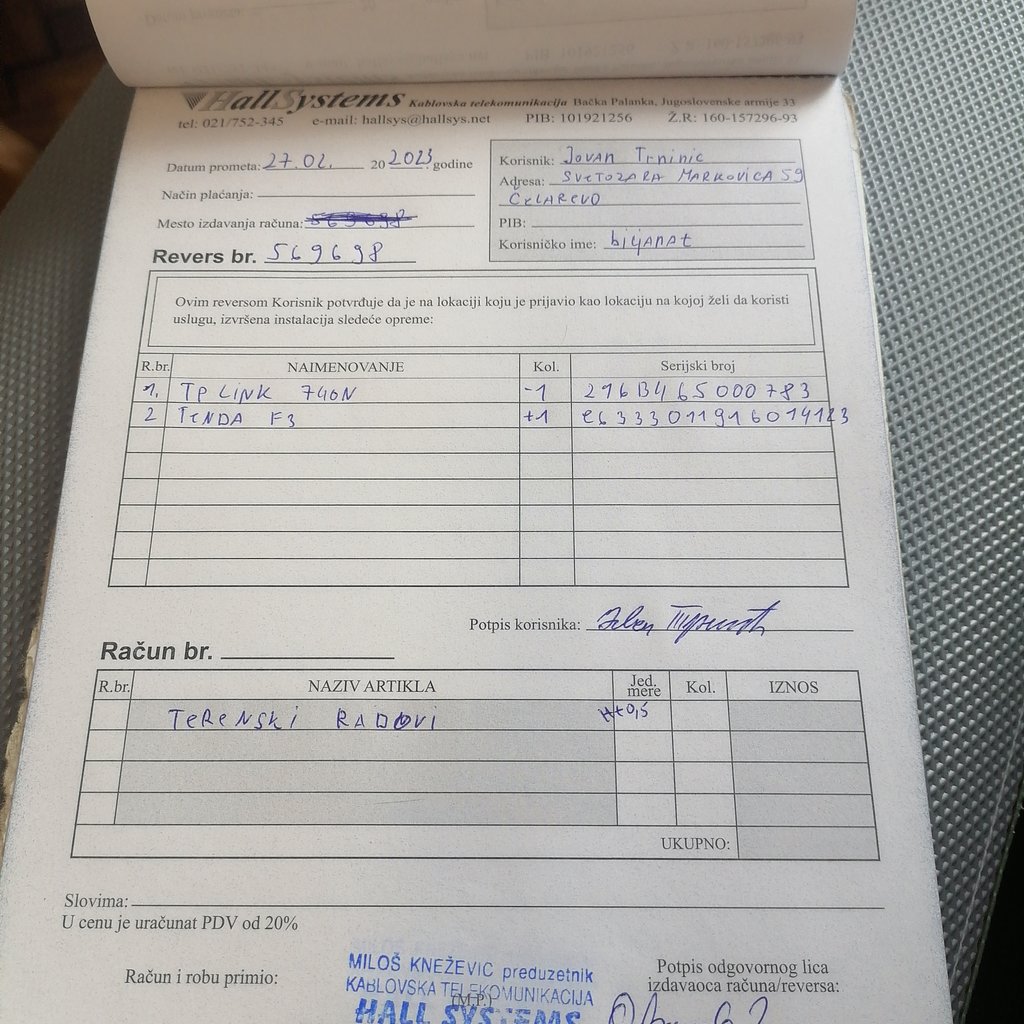 HallSystems Kablovska telekomunikacija Bačka Palanka, Jugoslovenske armije 33
tel: 021/752-345 e-mail: hallsys@hallsys.net PIB: 101921256 Ž.R: 160-157296-93
Datum prometa: 27.02. 20 2023 godine
Način plaćanja:
Mesto izdavanja računa:
Revers br. 569698
Korisnik: Jovan Trninic
Adresa: SVETOZARA MARKOVICA 59
CELAREVO
PIB:
Korisničko ime: biljanat
Ovim reversom Korisnik potvrđuje da je na lokaciji koju je prijavio kao lokaciju na kojoj želi da koristi
uslugu, izvršena instalacija sledeće opreme:
R.br. NAIMENOVANJE Kol. Serijski broj
1. TP LINK 740N -1 216B465000783
2 TENDA F3 +1
Potpis korisnika:
Račun br.
R.br. NAZIV ARTIKLA Jed. mere Kol. IZNOS
TERENSKI RADOVI
UKUPNO:
Slovima:
U cenu je uračunat PDV od 20%
Račun i robu primio:
MILOŠ KNEŽEVIĆ preduzetnik
KABLOVSKA TELEKOMUNIKACIJA
(M.P.)
HALL SYSTEMS
Potpis odgovornog lica
izdavaoca računa/reversa: